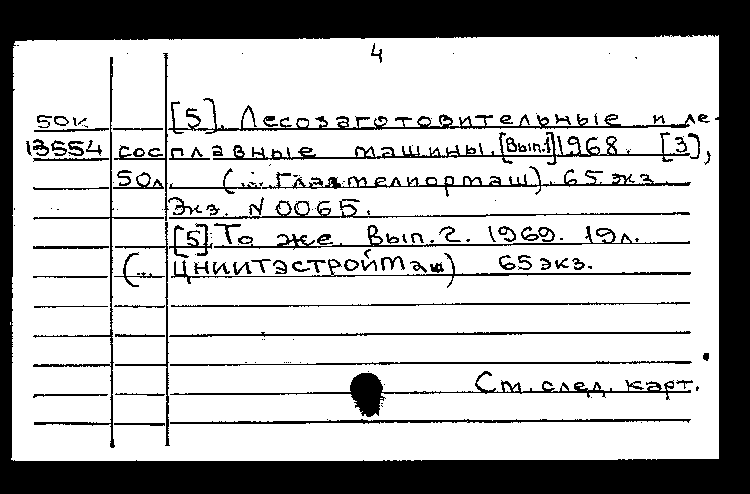 4
50к [5]. Лесозаготовительные и ле-
13554 сосплавные машины. [Вып.1] 1968. [3],
50л. (... Главмелиормаш). 65 экз.
Экз. N 0065.
[5] То же. Вып. 2. 1969. 19л.
(... ЦНИИТЭСТРОЙМаш) 65 экз.
См. след. карт.